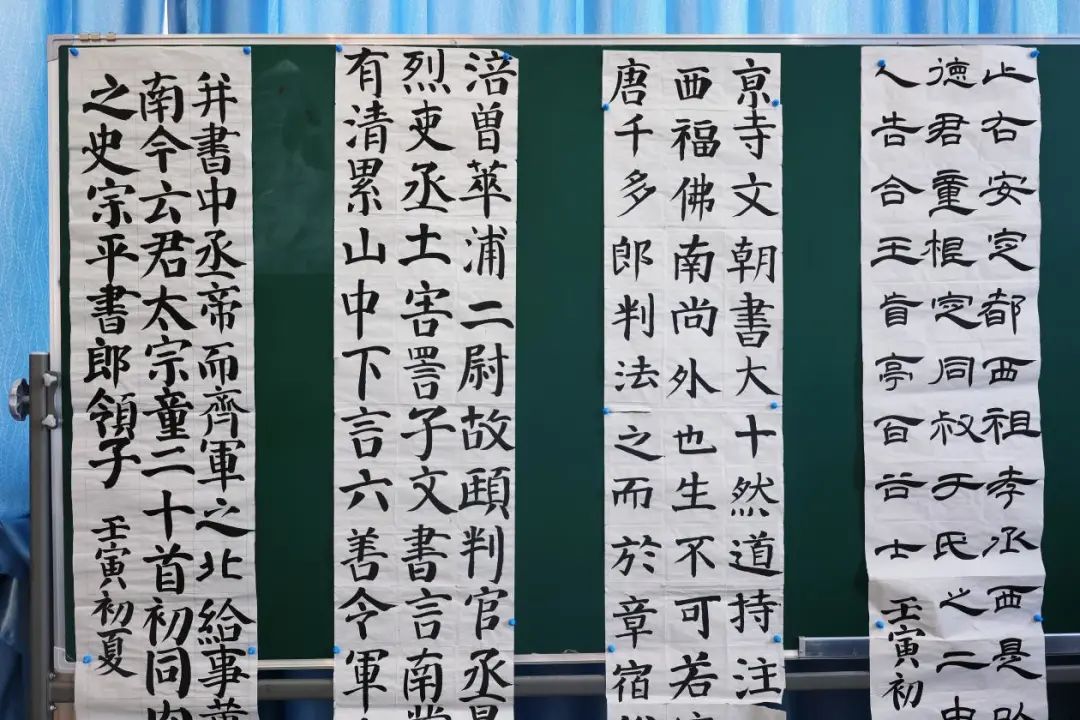 止右安定都西祖孝丞西是
德君重根定同叔于氏之二
人告合王亭百谷士
壬寅初
京寺文朝書大十然道持注
西福佛南尚外也生不可若
唐千多郎判法之而於章宿
涪曾華浦二尉故頤判官丞
烈吏丞土害詈子文書言南
有清累山中下言六善令軍
并書中丞帝而齊軍之北給事
南今云君太宗童二十首初同
之史宗平書郎領子 壬寅初夏